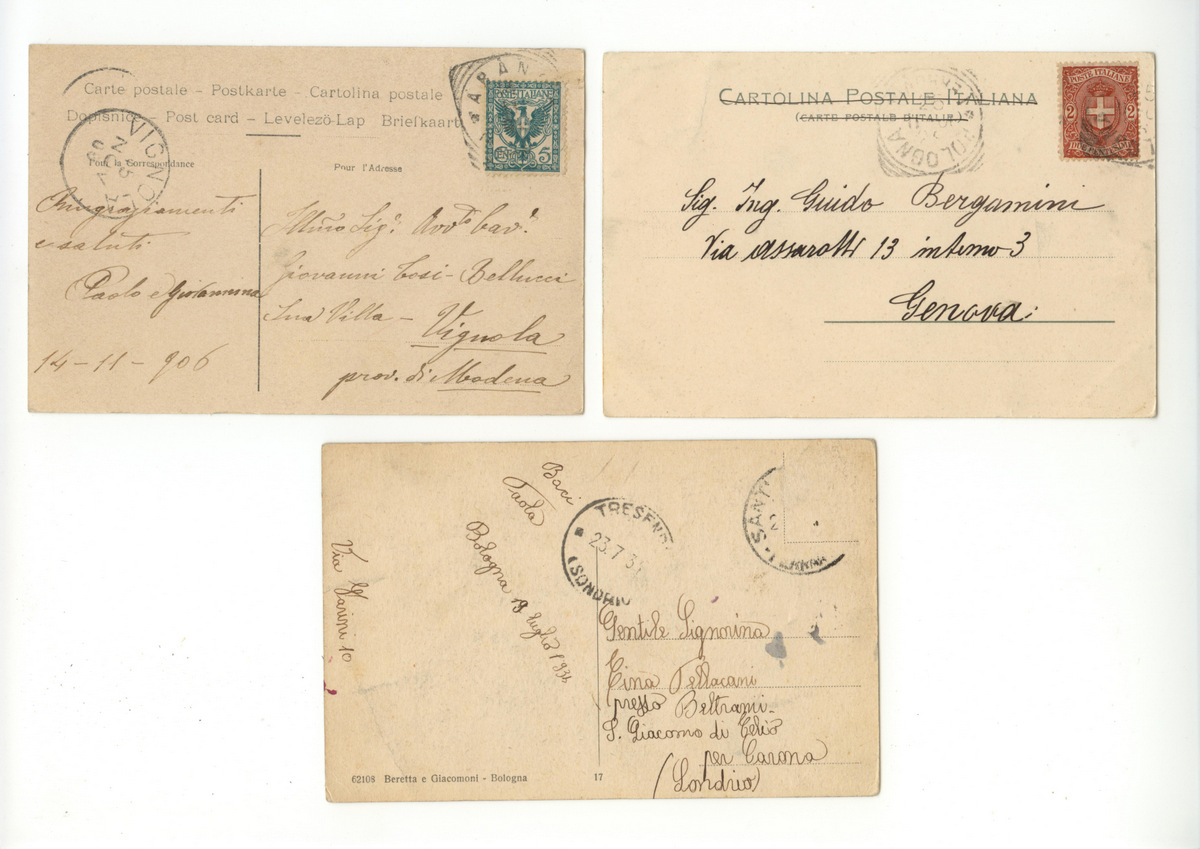 Carte postale – Postkarte – Cartolina postale
Dopisnice – Post card – Levelező-Lap Briefkaart
Pour la Correspondance
Pour l'Adresse
VIGNOLA
POSTE ITALIANE
CENT. 5
e saluti
Paolo e Giovannina
14-11-906
Illmo Sigr. Avvto Cavr.
Giovanni Cosi-Bellucci
Sua Villa – Vignola
prov. di Modena
CARTOLINA POSTALE ITALIANA
(CARTE POSTALE D'ITALIE)
BOLOGNA
POSTE ITALIANE
2 2
DUE CENTESIMI
Sig. Ing. Guido Bergamini
Via Assarotti 13 interno 3
Genova
Baci
Paola
Bologna 19 luglio 1936
10
TRESENDA
23.7.3
(SONDRIO
SANT
Gentile Signorina
Tina Pellacani
presso Beltrami-
S. Giacomo di Telio
per Carona
(Sondrio)
62108 Beretta e Giacomoni - Bologna
17